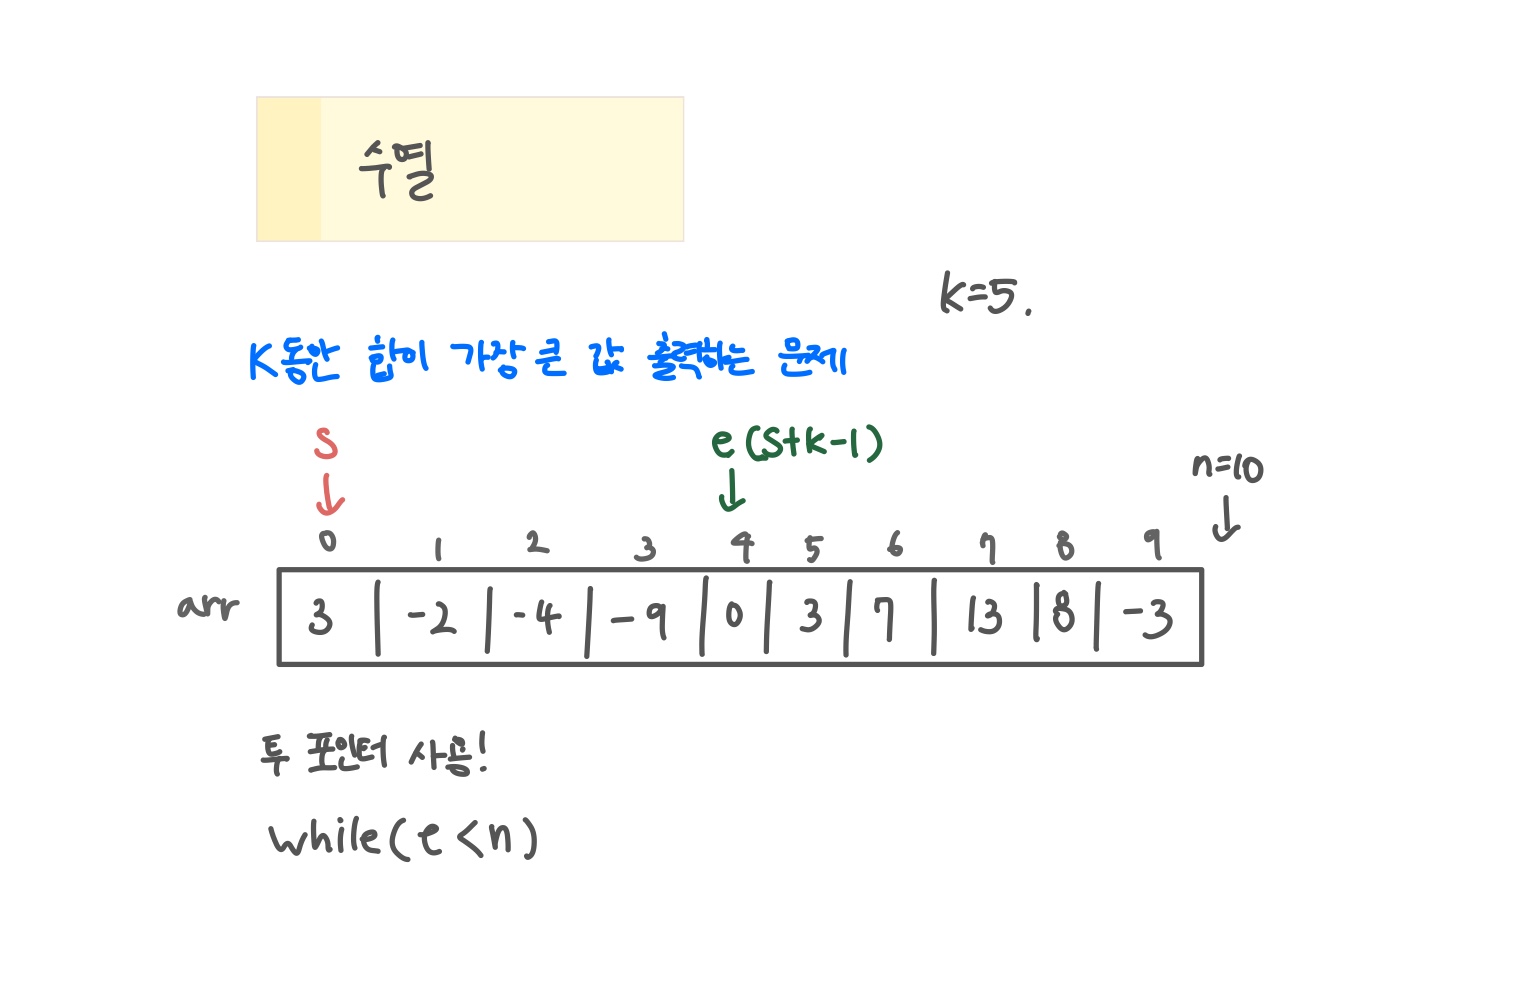 수열
k=5.
K동안 합이 가장 큰 값 출력하는 문제
s e (s+k-1)
n=10
0 1 2 3 4 5 6 7 8 9
arr 3 -2 -4 -9 0 3 7 13 8 -3
투 포인터 사용!
while(e<n)